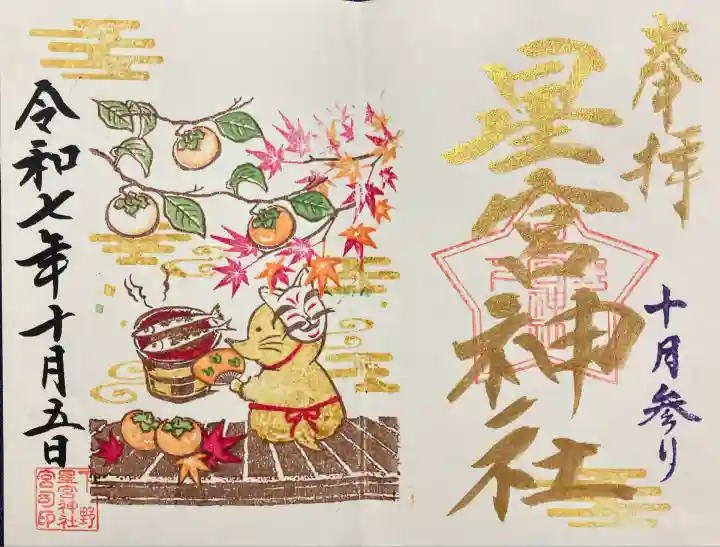 奉拝
十月参り
星宮神社
令和七年十月五日
下野
星宮神社
宮司印